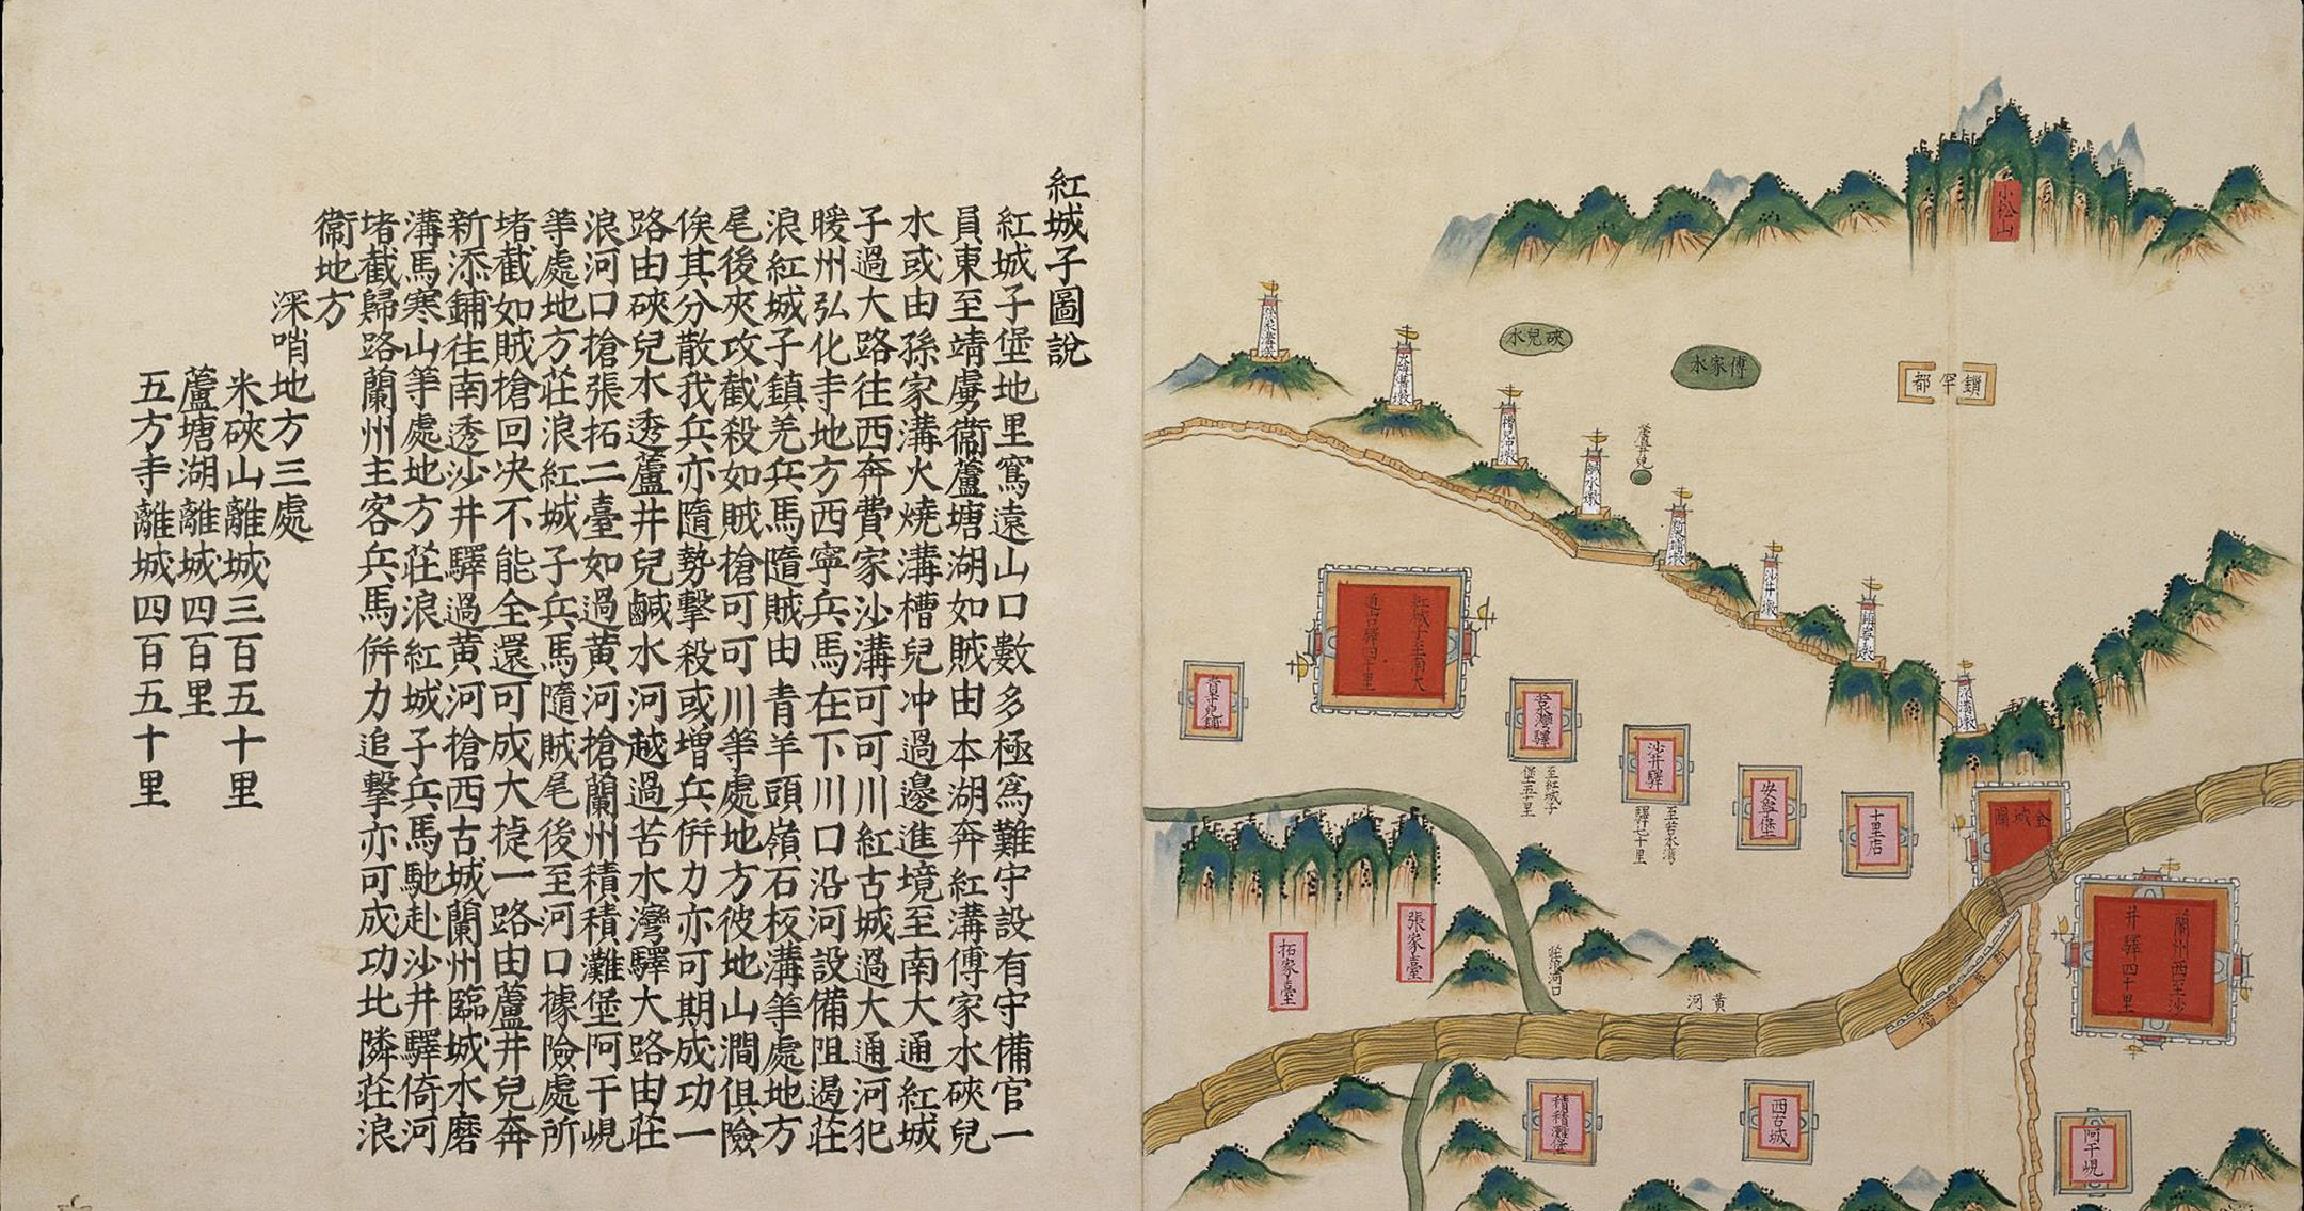 紅城子圖說
紅城子堡地里窵遠山口數多極爲難守設有守備官一
員東至靖虜衞蘆塘湖如賊由本湖奔紅溝傅家水硤兒
水或由孫家溝火燒溝槽兒冲過邊進境至南大通紅城
子過大路往西奔費家沙溝可可川紅古城過大通河犯
暖州弘化寺地方西寧兵馬在下川口沿河設備阻遏莊
浪紅城子鎮羌兵馬隨賊由青羊頭嶺石板溝等處地方
尾後夾攻截殺如賊搶可可川等處地方彼地山澗俱險
俟其分散我兵亦隨勢擊殺或增兵併力亦可期成功一
路由硤兒水透蘆井兒鹹水河越過苦水灣驛大路由莊
浪河口搶張拓二臺如過黄河搶蘭州積積灘堡阿干峴
等處地方莊浪紅城子兵馬隨賊尾後至河口據險處所
堵截如賊搶回决不能全還可成大㨗一路由蘆井兒奔
新添鋪往南透沙井驛過黄河搶西古城蘭州臨城水磨
溝馬寒山等處地方莊浪紅城子兵馬馳赴沙井驛倚河
堵截歸路蘭州主客兵馬併力追擊亦可成功比隣莊浪
衞地方
深哨地方三處
米硤山離城三百五十里
蘆塘湖離城四百里
五方寺離城四百五十里
小松山
鎖罕都
傅家水
硤兒水
蘆井兒
槽兒冲墩
鹹水墩
沙井墩
紅城子至南大
通古驛四十里
苦水灣驛
至紅城子
堡五十里
沙井驛
至苦水灣
驛七十里
安寧堡
十里店
金城關
蘭州西至沙
井驛四十里
張家臺
拓家臺
莊浪河口
黄河
積積灘堡
西古城
阿干峴